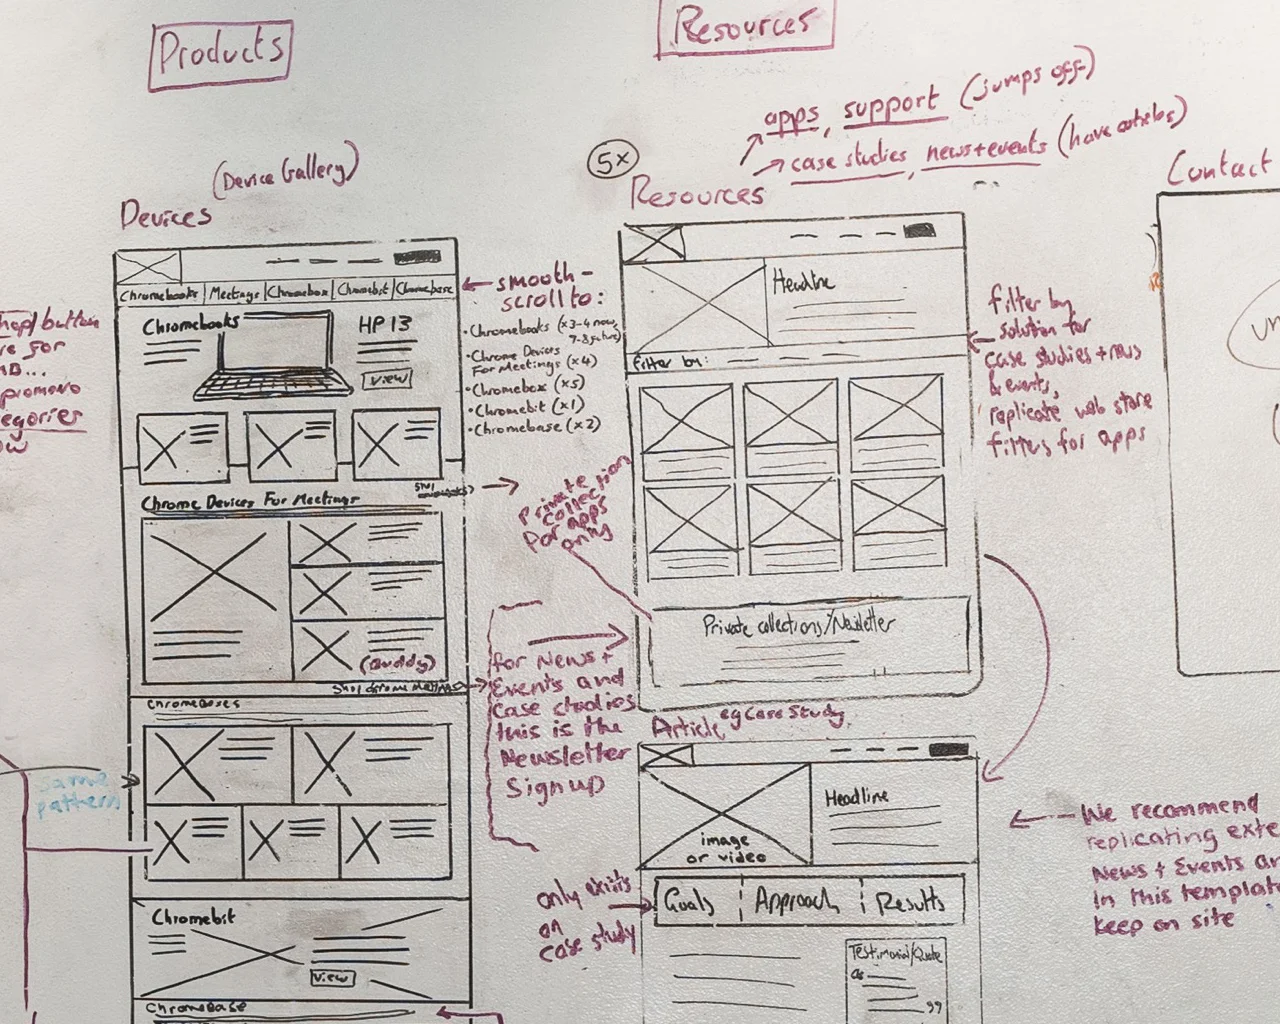 Products
(Device Gallery)
Devices
Chromebooks | Meetings | Chromebox | Chromebit | Chromebase
Chromebooks
HP 13
view
Chrome Devices For Meetings
(Buddy)
Chromeboxes
Chromebit
view
Chromebase
smooth-
scroll to:
• Chromebooks (x3-4 now,
7-8 future)
• Chrome Devices
For Meetings (x4)
• Chromebox (x5)
• Chromebit (x1)
• Chromebase (x2)
button
for
same
pattern
Resources
apps, support (jumps off)
case studies, news+events (have articles)
5x
Resources
Headline
filter by:
Private collections/Newsletter
filter by
solution for
case studies + news
& events,
replicate web store
filters for apps
Private
collection
for apps
only
for News +
Events and
case studies
this is the
Newsletter
Sign up
Article, eg Case Study,
Headline
image
or video
Goals | Approach | Results
Testimonial/Quote
only exists
on
case study
We recommend
replicating
News + Events
in this template
keep on site
Contact